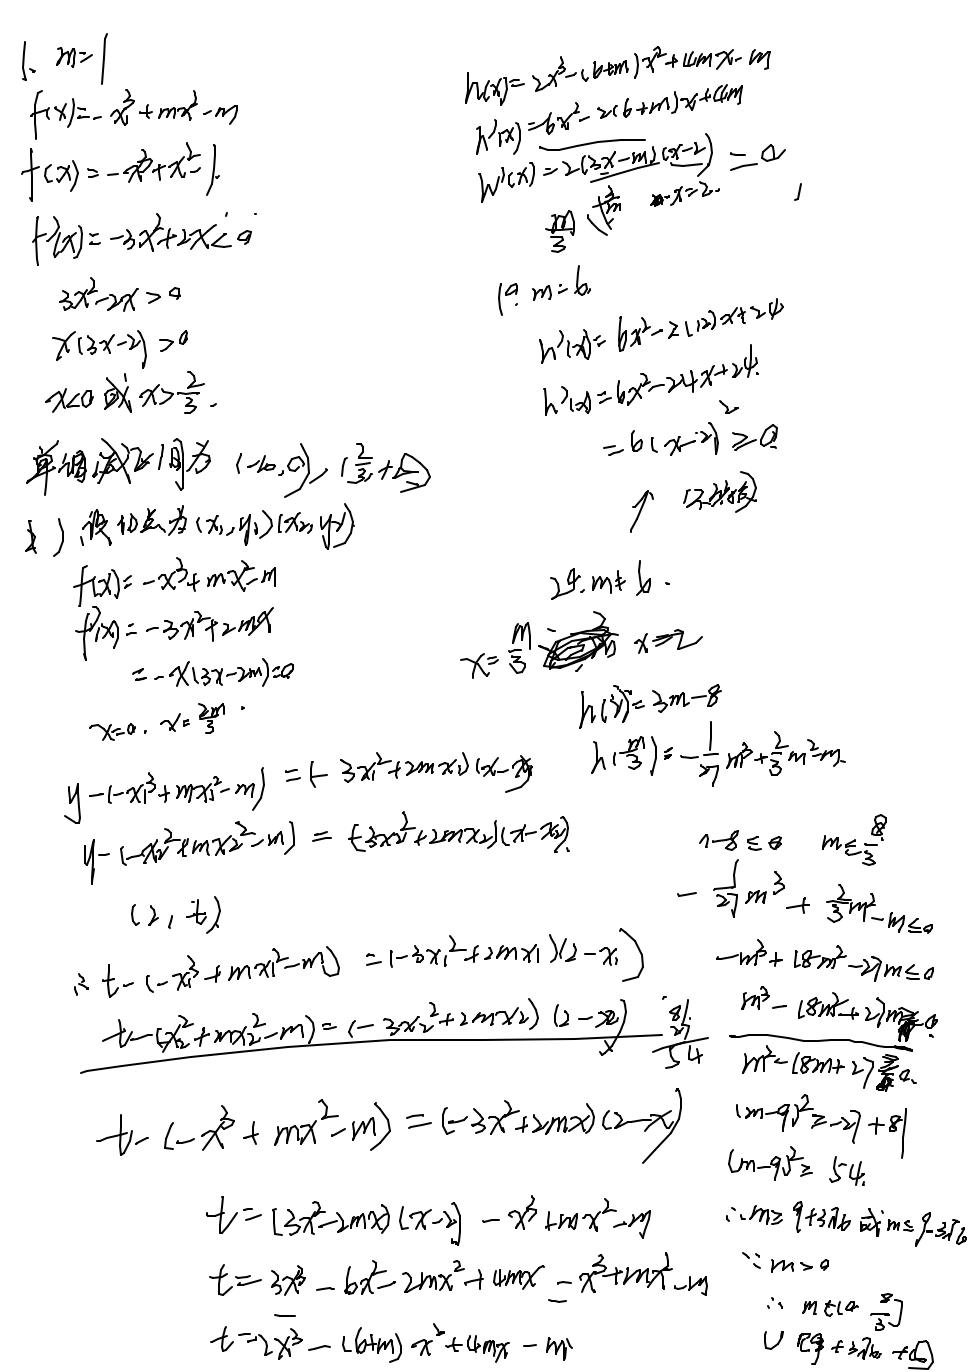 1. m=1
f(x)=-x³+mx²-m
f(x)=-x³+x²-1.
f'(x)=-3x²+2x<0
3x²-2x>0
x(3x-2)>0
x<0 或 x>2/3.
单调减区间为 (-∞,0), (2/3,+∞)
2) 设切点为(x₁,y₁)(x₂,y₂)
f(x)=-x³+mx²-m
f'(x)=-3x²+2mx
=-x(3x-2m)=0
x=0. x=2m/3.
y-(-x₁³+mx₁²-m)=(-3x₁²+2mx₁)(x-x₁)
y-(-x₂²+mx₂²-m)=(-3x₂²+2mx₂)(x-x₂).
(2,t)
∴t-(-x₁³+mx₁²-m)=(-3x₁²+2mx₁)(2-x₁)
t-(x₂²+mx₂²-m)=(-3x₂²+2mx₂)(2-x₂)
t-(-x³+mx²-m)=(-3x²+2mx)(2-x)
t=(3x²-2mx)(x-2)-x³+mx²-m
t=3x³-6x²-2mx²+4mx-x³+mx²-m
t=2x³-(6+m)x²+4mx-m
h(x)=2x³-(6+m)x²+4mx-m
h'(x)=6x²-2(6+m)x+4m
h'(x)=2(3x-m)(x-2)=0
m/3 x=2.
1°. m=6
h'(x)=6x²-2(12)x+24
h'(x)=6x²-24x+24.
=6(x-2)²≥0
↑ (不多指)
2°. m≠6.
x=m/3 x=2
h(2)=3m-8
h(m/3)=-1/27m³+2/3m²-m.
-8≤0 m≤8/3
-1/27m³+2/3m²-m≤0
-m³+18m²-27m≤0
81
27
54
m³-18m²+27m≥0
m²-18m+27≥0.
(m-9)²≥-27+81
(m-9)²≥54.
∴m≥9+3√6 或 m≤9-3√6
∵m>0
∴m∈(0 8/3]
∪[9+3√6 +∞)